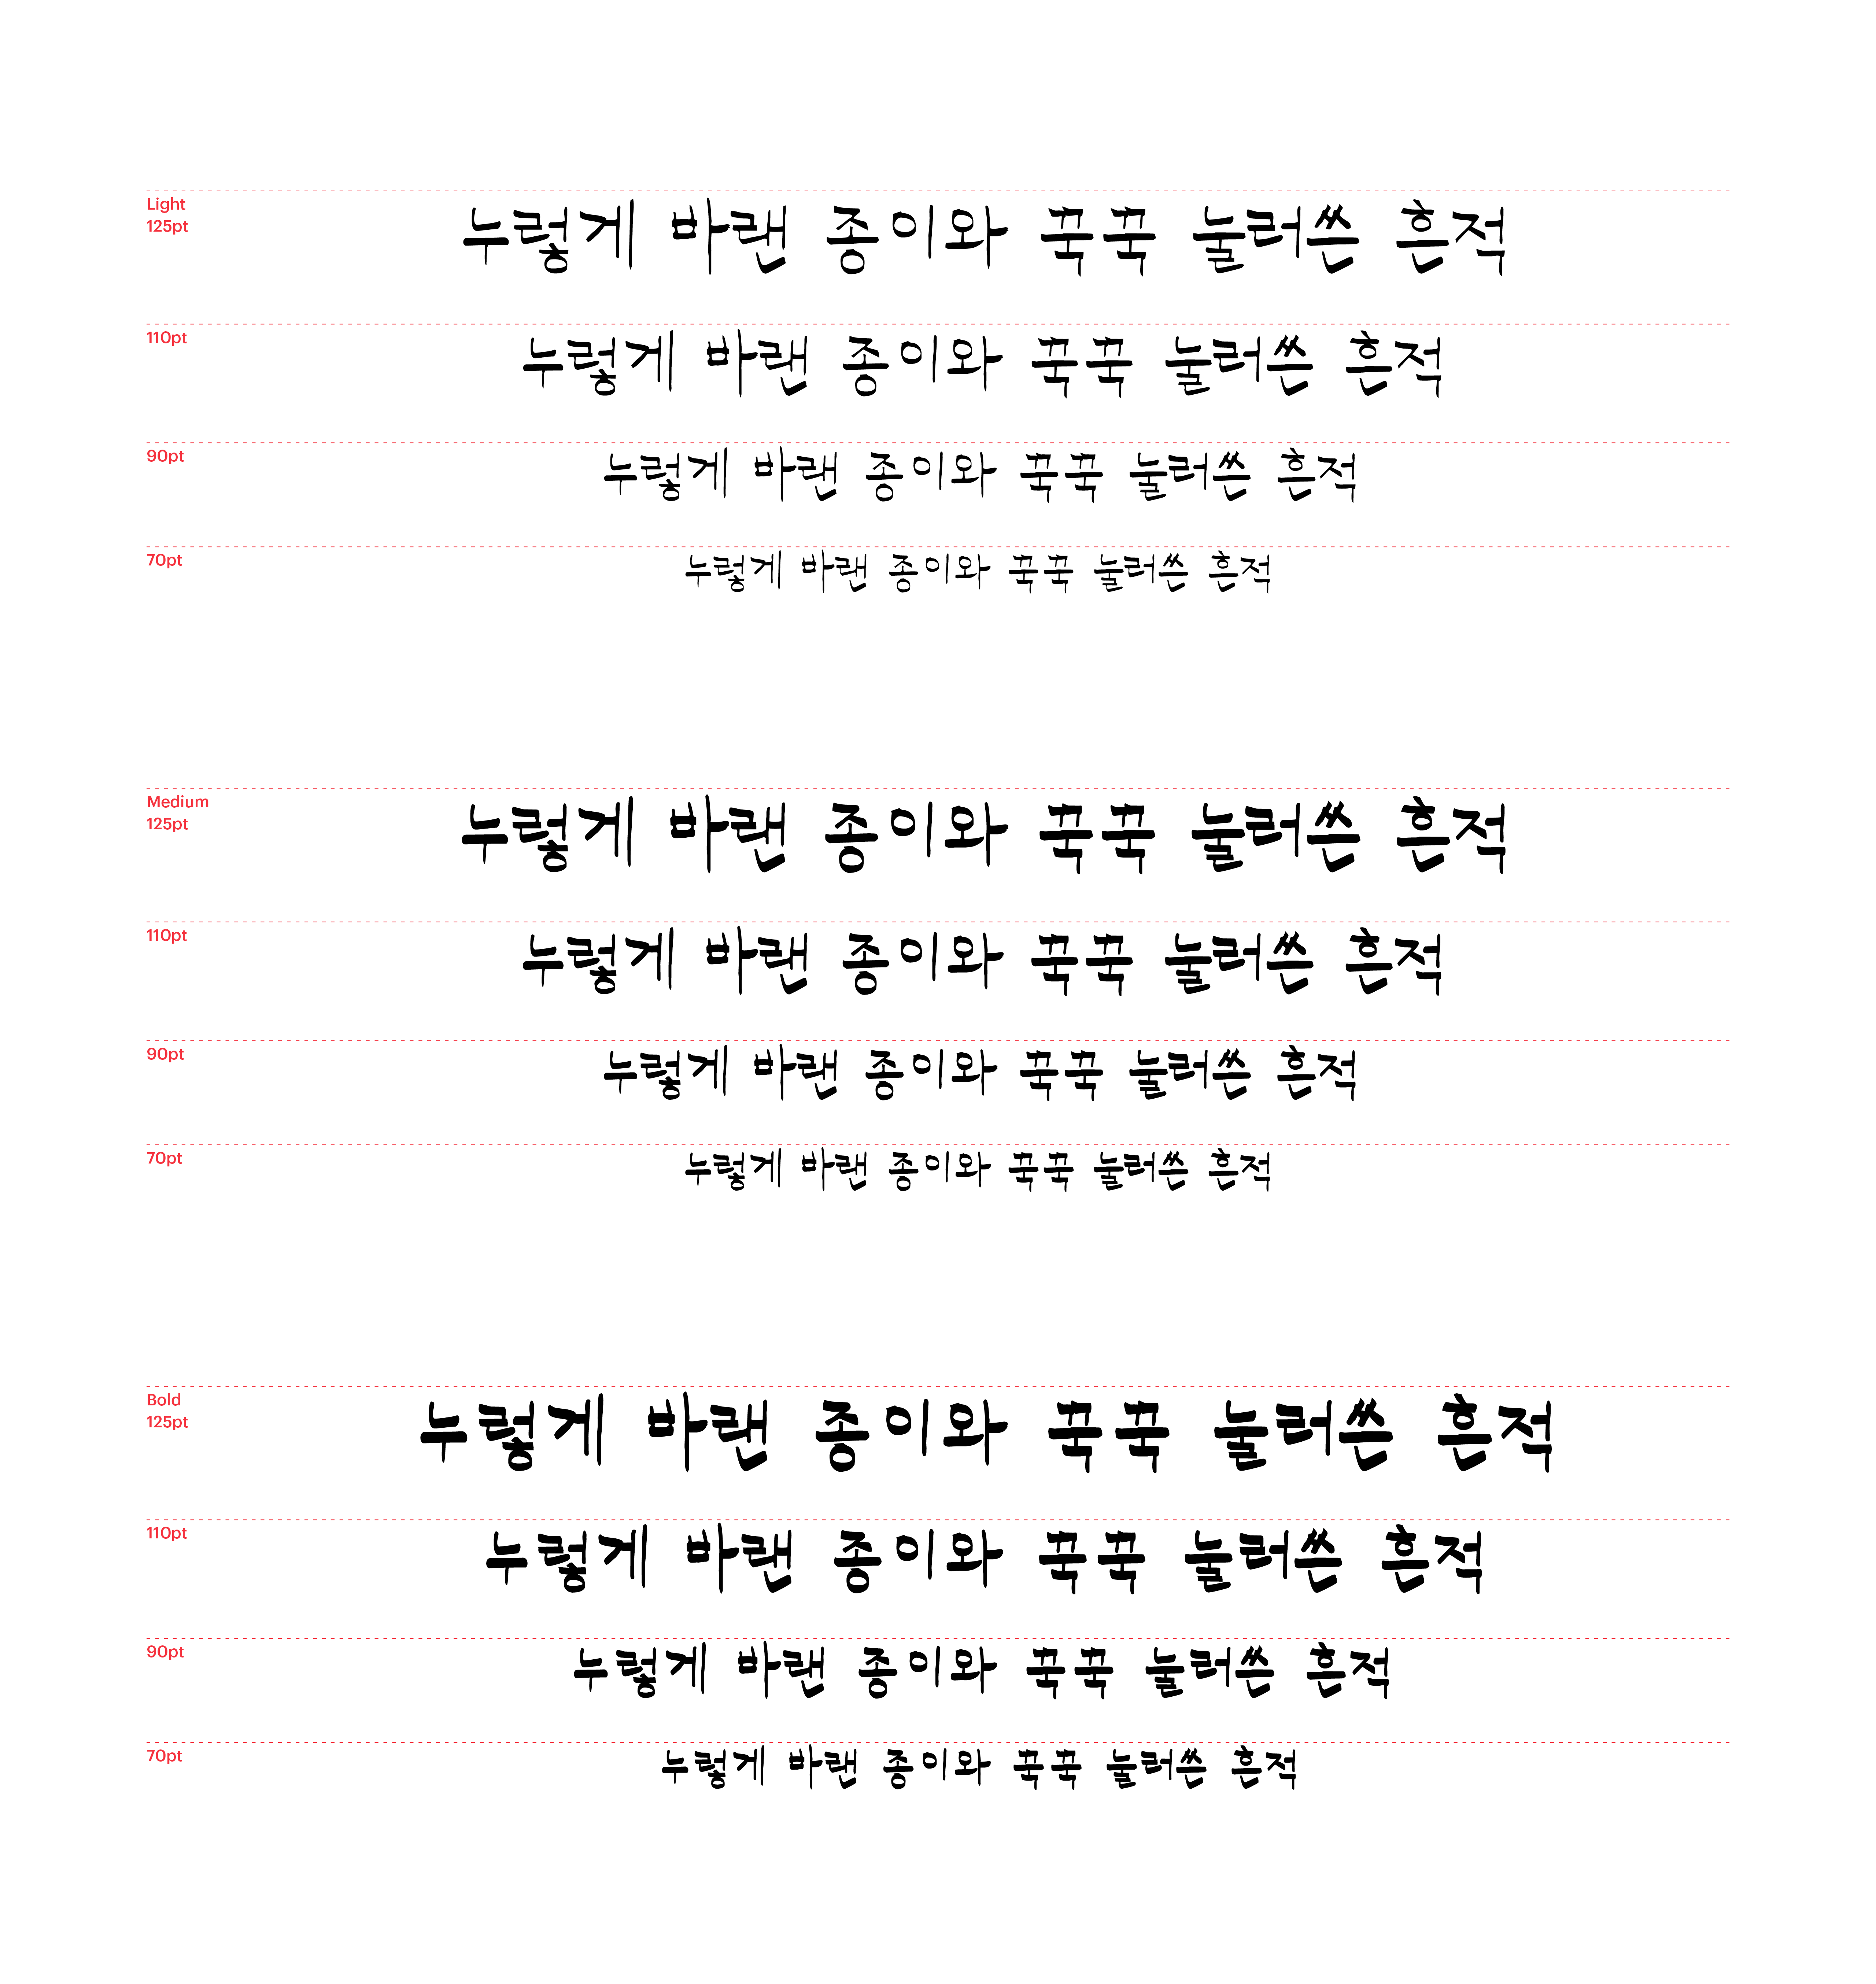 Light
125pt
누렇게 바랜 종이와 꾹꾹 눌러쓴 흔적
110pt
누렇게 바랜 종이와 꾹꾹 눌러쓴 흔적
90pt
누렇게 바랜 종이와 꾹꾹 눌러쓴 흔적
70pt
누렇게 바랜 종이와 꾹꾹 눌러쓴 흔적
Medium
125pt
누렇게 바랜 종이와 꾹꾹 눌러쓴 흔적
110pt
누렇게 바랜 종이와 꾹꾹 눌러쓴 흔적
90pt
누렇게 바랜 종이와 꾹꾹 눌러쓴 흔적
70pt
누렇게 바랜 종이와 꾹꾹 눌러쓴 흔적
Bold
125pt
누렇게 바랜 종이와 꾹꾹 눌러쓴 흔적
110pt
누렇게 바랜 종이와 꾹꾹 눌러쓴 흔적
90pt
누렇게 바랜 종이와 꾹꾹 눌러쓴 흔적
70pt
누렇게 바랜 종이와 꾹꾹 눌러쓴 흔적